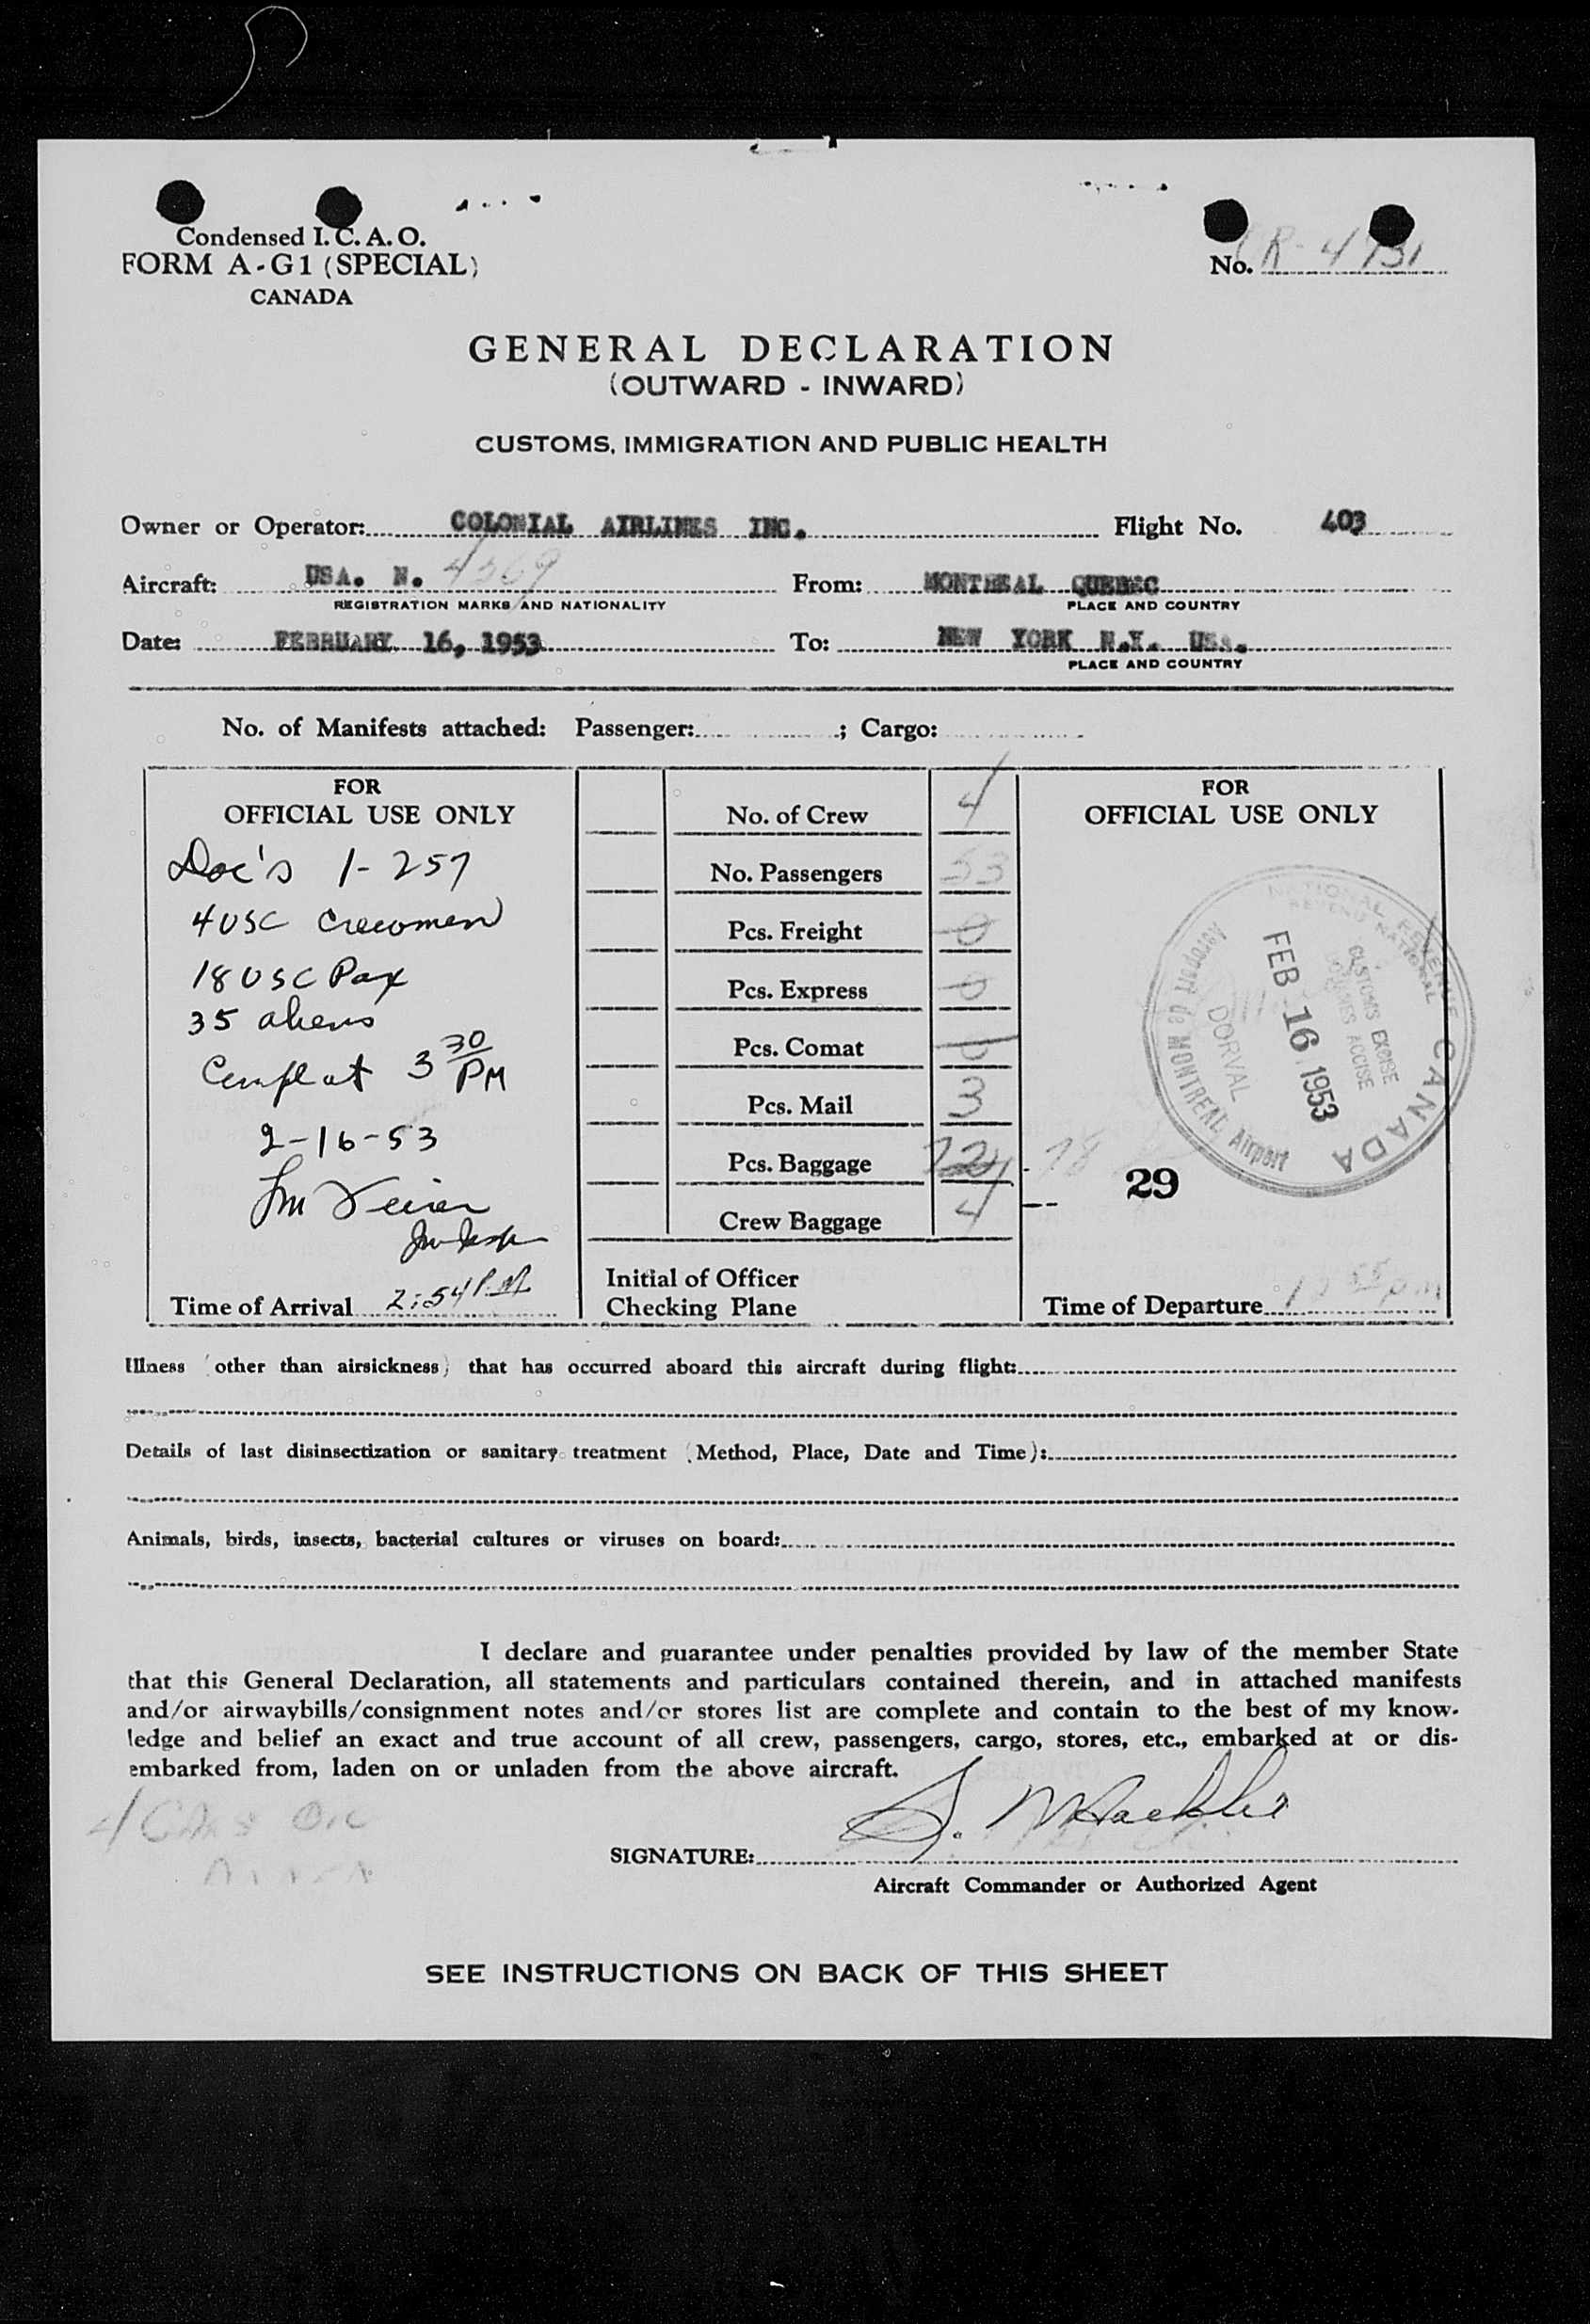 Condensed I. C. A. O.
FORM A-G1 (SPECIAL)
CANADA
No. R-4931
GENERAL DECLARATION
(OUTWARD - INWARD)
CUSTOMS, IMMIGRATION AND PUBLIC HEALTH
Owner or Operator: COLONIAL AIRLINES INC. Flight No. 403
Aircraft: USA. N. 4569 From: MONTREAL QUEBEC
REGISTRATION MARKS AND NATIONALITY PLACE AND COUNTRY
Date: FEBRUARY 16, 1953 To: NEW YORK N.Y. USA.
PLACE AND COUNTRY
No. of Manifests attached: Passenger: ; Cargo:
FOR
OFFICIAL USE ONLY
Doc's 1-257
4 USC Crewmen
18 USC Pax
35 aliens
Compl at 3 30 PM
2-16-53
Time of Arrival 2:54 P.M.
No. of Crew 4
No. Passengers 53
Pcs. Freight 0
Pcs. Express 0
Pcs. Comat
Pcs. Mail 3
Pcs. Baggage 78
Crew Baggage 4
Initial of Officer
Checking Plane
FOR
OFFICIAL USE ONLY
NATIONAL REVENUE CANADA
REVENU NATIONAL
CUSTOMS EXCISE
DOUANES ACCISE
FEB 16 1953
DORVAL
Aéroport de MONTREAL Airport
29
Time of Departure 12 55 pm
Illness (other than airsickness) that has occurred aboard this aircraft during flight:
Details of last disinsectization or sanitary treatment (Method, Place, Date and Time):
Animals, birds, insects, bacterial cultures or viruses on board:
I declare and guarantee under penalties provided by law of the member State
that this General Declaration, all statements and particulars contained therein, and in attached manifests
and/or airwaybills/consignment notes and/or stores list are complete and contain to the best of my know-
ledge and belief an exact and true account of all crew, passengers, cargo, stores, etc., embarked at or dis-
embarked from, laden on or unladen from the above aircraft.
SIGNATURE:
Aircraft Commander or Authorized Agent
SEE INSTRUCTIONS ON BACK OF THIS SHEET